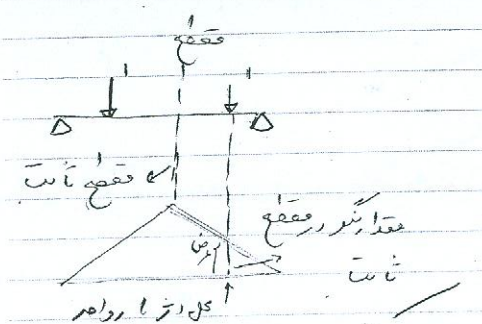 مقطع
1 1
مقطع ثابت
عرض
مقدار لنگر در مقطع
ثابت
محل اثر بار واحد